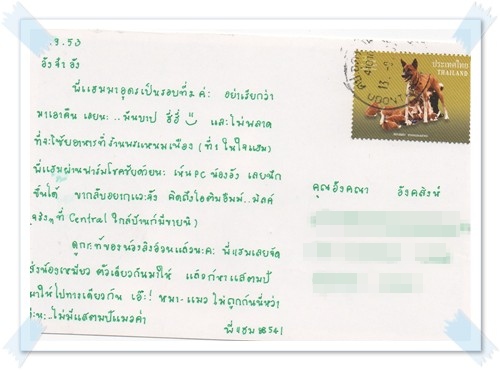 .8.53
อังจ๋าอัง
พี่แฮมมาอุดรเป็นรอบที่๔ ค่ะ อย่าเรียกว่า
มาเอาคืน เลยนะ..มันบาป ฮี่ฮี่ และไม่พลาด
ที่จะไปชิมอาหารที่ร้านพระเหนมเนือง (ที่1 ในใจแฮม)
พี่แฮมผ่านฟาร์มโชคชัยด้วยนะ เห็น PC น้องอัง เลยนึก
ขึ้นได้ ขากลับอยากแวะจัง คิดถึงไอติมอืมม์..มิลค์
จริงๆที่ Central ใกล้บ้านก็มีขายนิ)
ดูกะทู้ของน้องอิงอ้อนแล้วนะคะ พี่แฮมเลยจัด
ส่งน้องเหมียว ตัวเดียวกันมาให้ แล้วก็หาแสตมป์
มาให้ไปทางเดียวกัน เอ๊ะ! หมา-แมว ไม่ถูกกันนี่หว่า
..ไม่มีแสตมป์แมวค่า
พี่แฮม
ประเทศไทย
THAILAND
UDON
คุณอังคณา อังคสิงห์